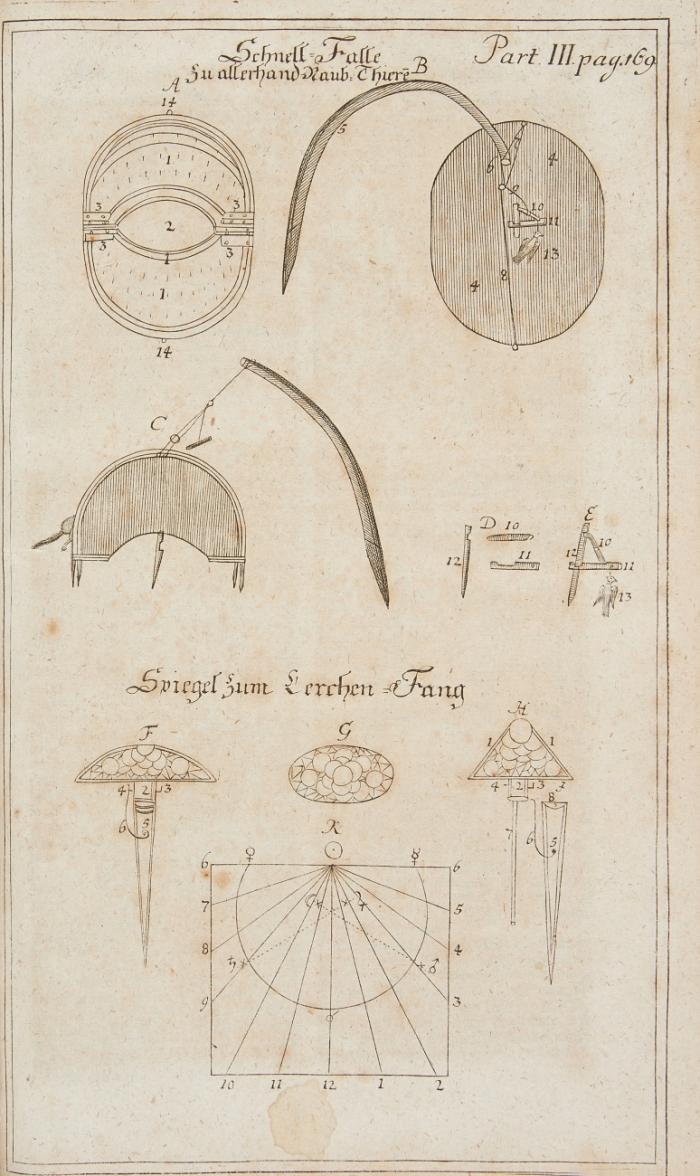 Schnell=Falle
Part. III. pag. 169
Zu allerhand Raub=Thierē
A
B
14
1
5
6
4
9
3
3
10
11
2
1
3
3
13
8
4
1
14
C
D
10
E
12
11
12
10
11
13
Spiegel zum Lerchen=Fang
F
G
H
1
1
4
2
3
4
2
3
8
6
5
7
6
5
K
☉
♀
☿
6
6
☾
♃
7
5
8
4
♄
♂
9
3
10
11
12
1
2